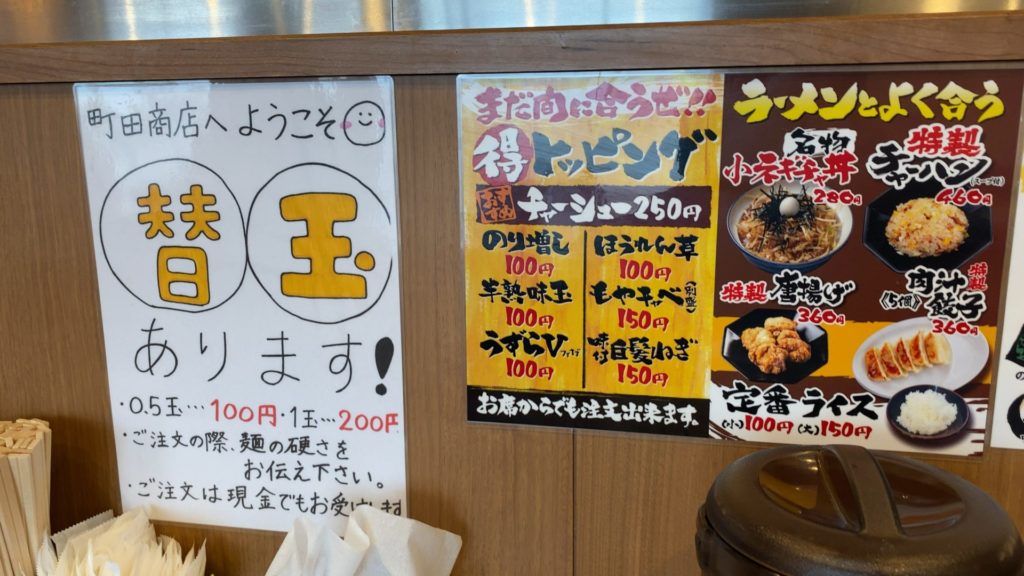 町田商店へようこそ
替玉
あります!
・0.5玉…100円・1玉…200円
・ご注文の際、麺の硬さを
お伝え下さい。
・ご注文は現金でもお受けします
まだ間に合うぜ!!
得トッピング
おすすめ チャーシュー250円
のり増し
100円
ほうれん草
100円
半熟味玉
100円
もやキャベ(別盛)
150円
うずらV
100円
味付白髪ねぎ
150円
お席からでも注文出来ます。
ラーメンとよく合う
名物
小ネギチャ丼
280円
特製
チャーハン
(スープ付)
460円
特製 唐揚げ
360円
特製
肉汁餃子
《5個》
360円
定番ライス
(小)100円 (大)150円